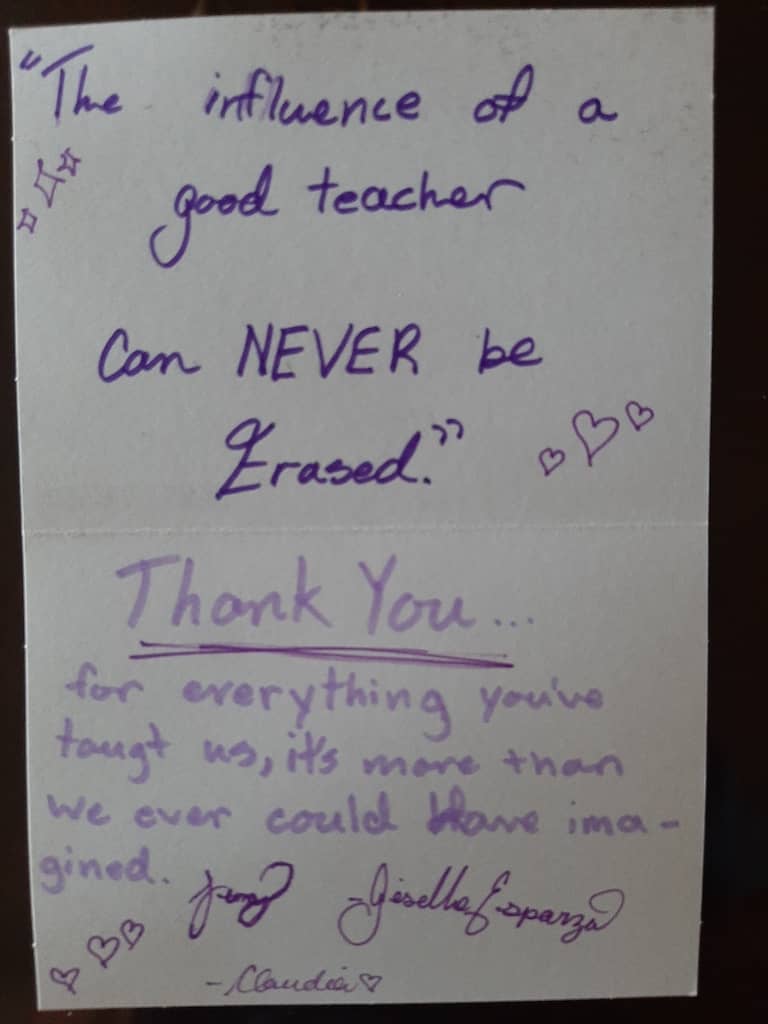 "The influence of a
good teacher
Can NEVER be
Erased."
Thank You...
for everything you've
taugt us, it's more than
we ever could have ima-
gined.
-Gisella Esparza
-Claudia